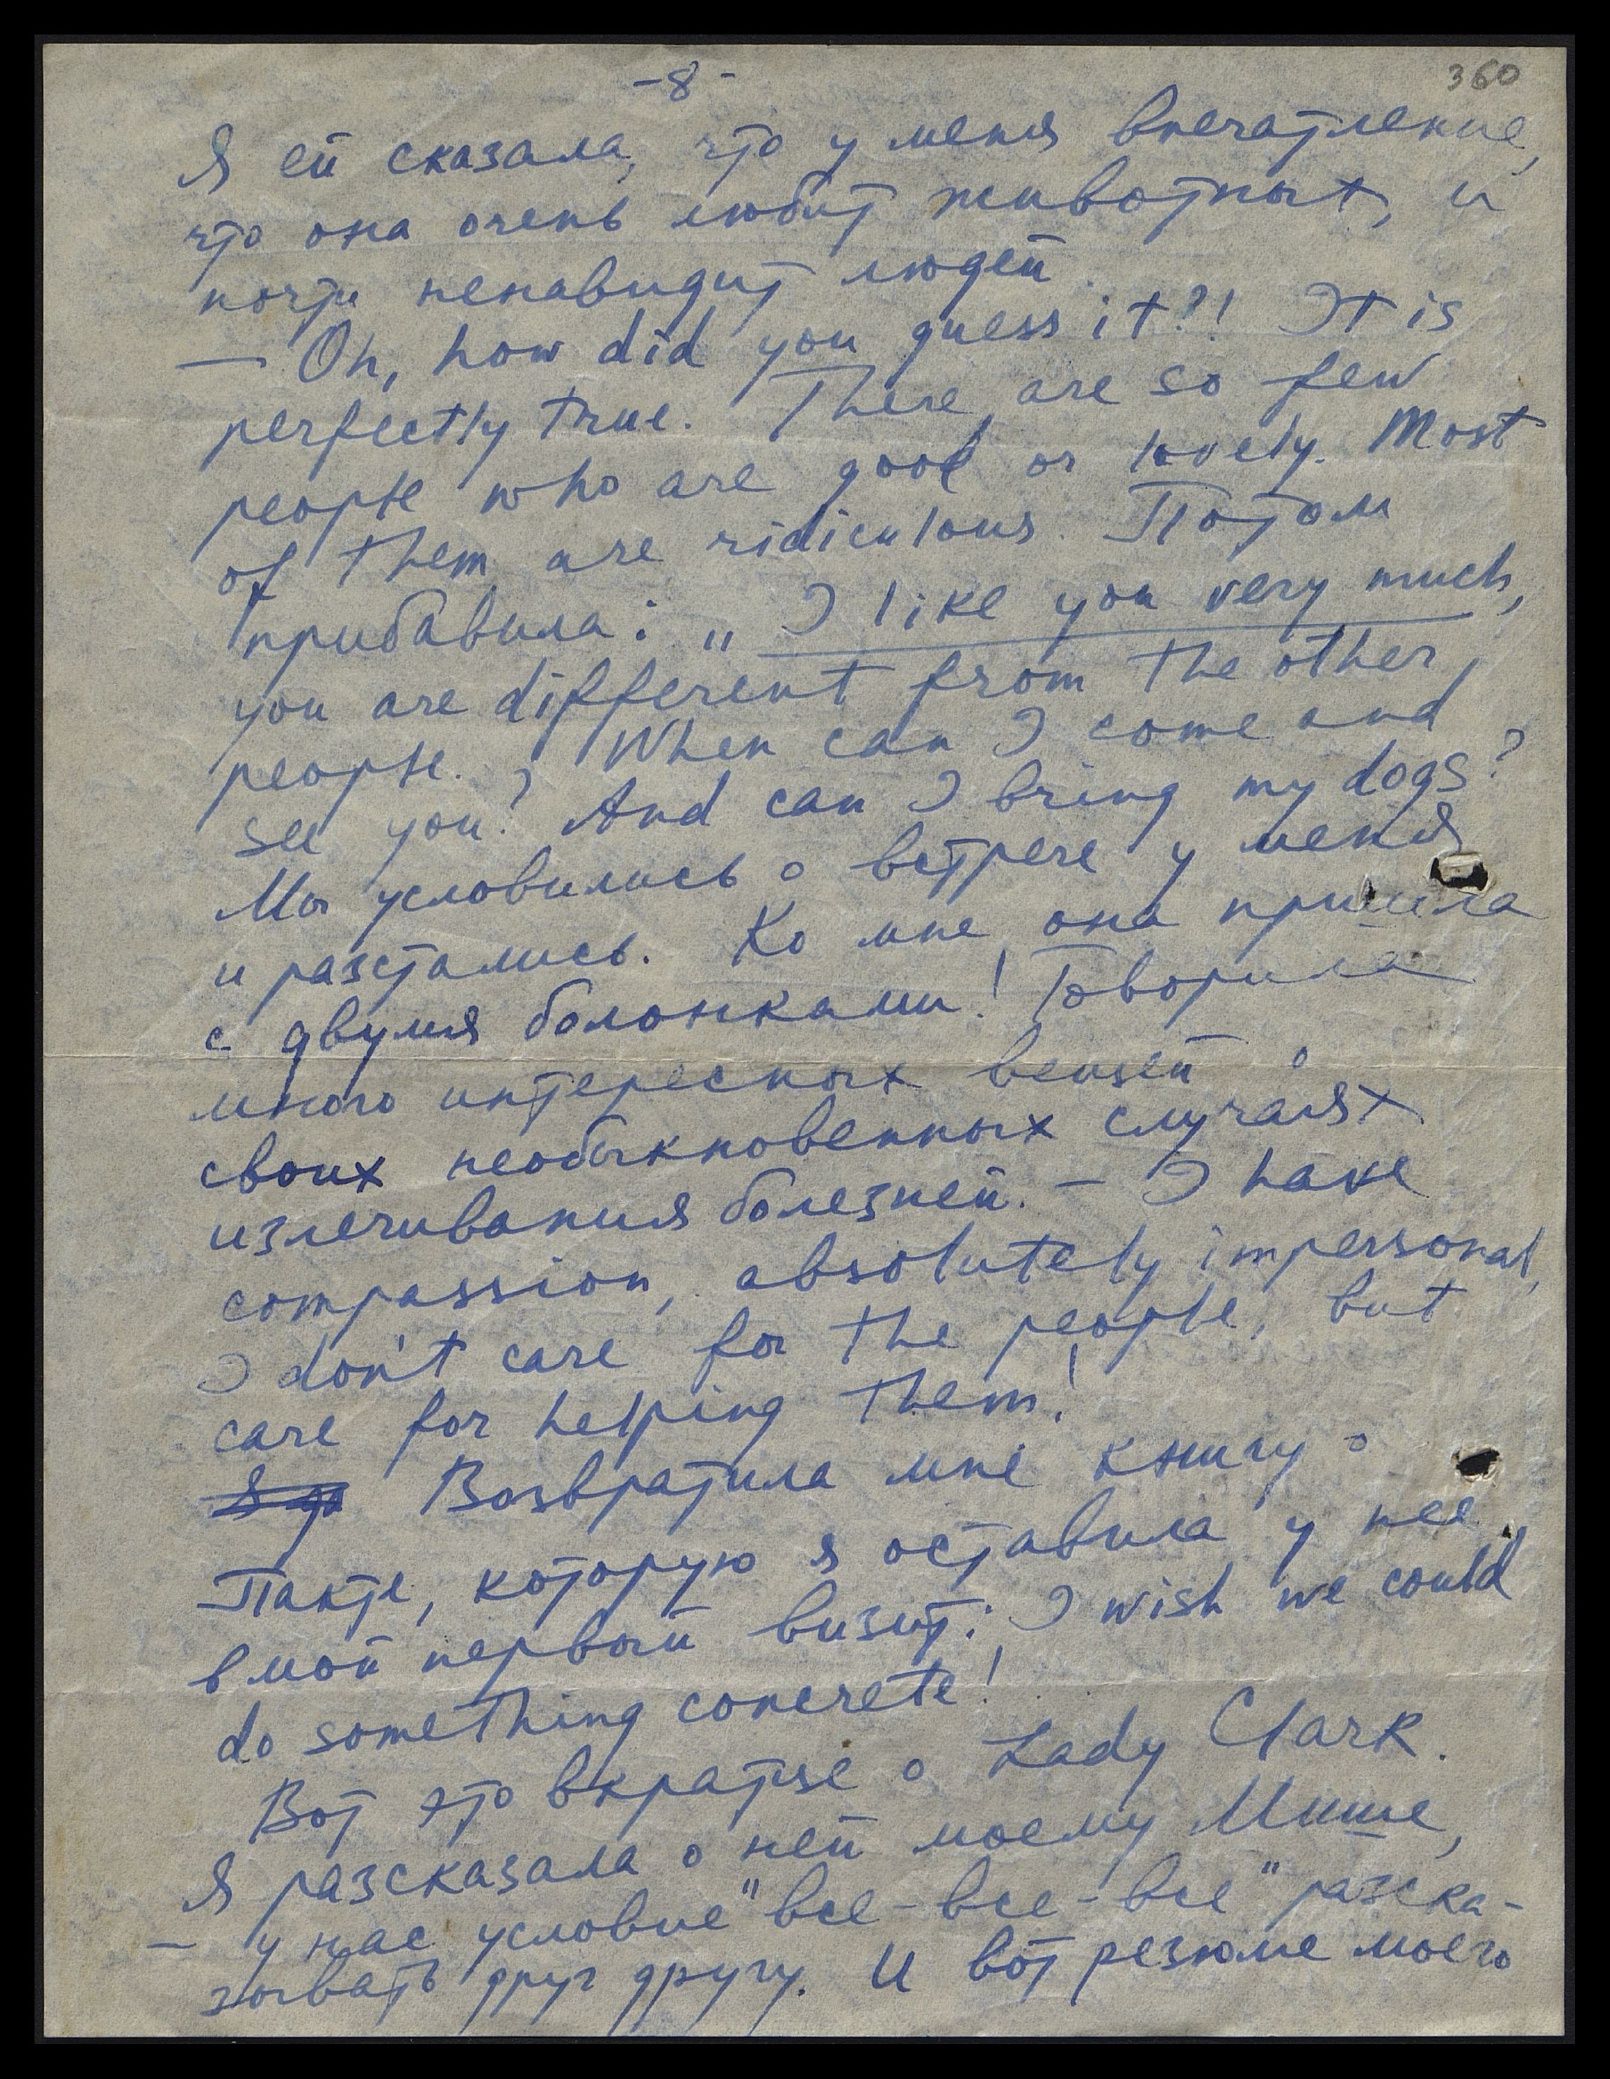 -8-
360
Я ей сказала, что у меня впечатление,
что она очень любит животных, и
почти ненавидит людей.
— Oh, how did you guess it?! It is
perfectly true. There are so few
people who are good or lovely. Most
of them are ridiculous. Потом
прибавила: „ I like you very much,
you are different from the other
people. When can I come and
see you? And can I bring my dogs?
Мы условились о встрече у меня
и разстались. Ко мне она пришла
с двумя болонками! Говорила
много интересных вещей о
своих необыкновенных случаях
излечивания болезней. - I have
compassion, absolutely impersonal,
I don't care for the people, but
care for helping them!
Возвратила мне книгу о
Пакте, которую я оставила у нее
в мой первый визит: I wish we could
do something concrete!
Вот это вкратце о Lady Clark.
Я разсказала о ней моему Мише,
— у нас условие "все-все-все" разска-
зывать друг другу. И вот резюме моего